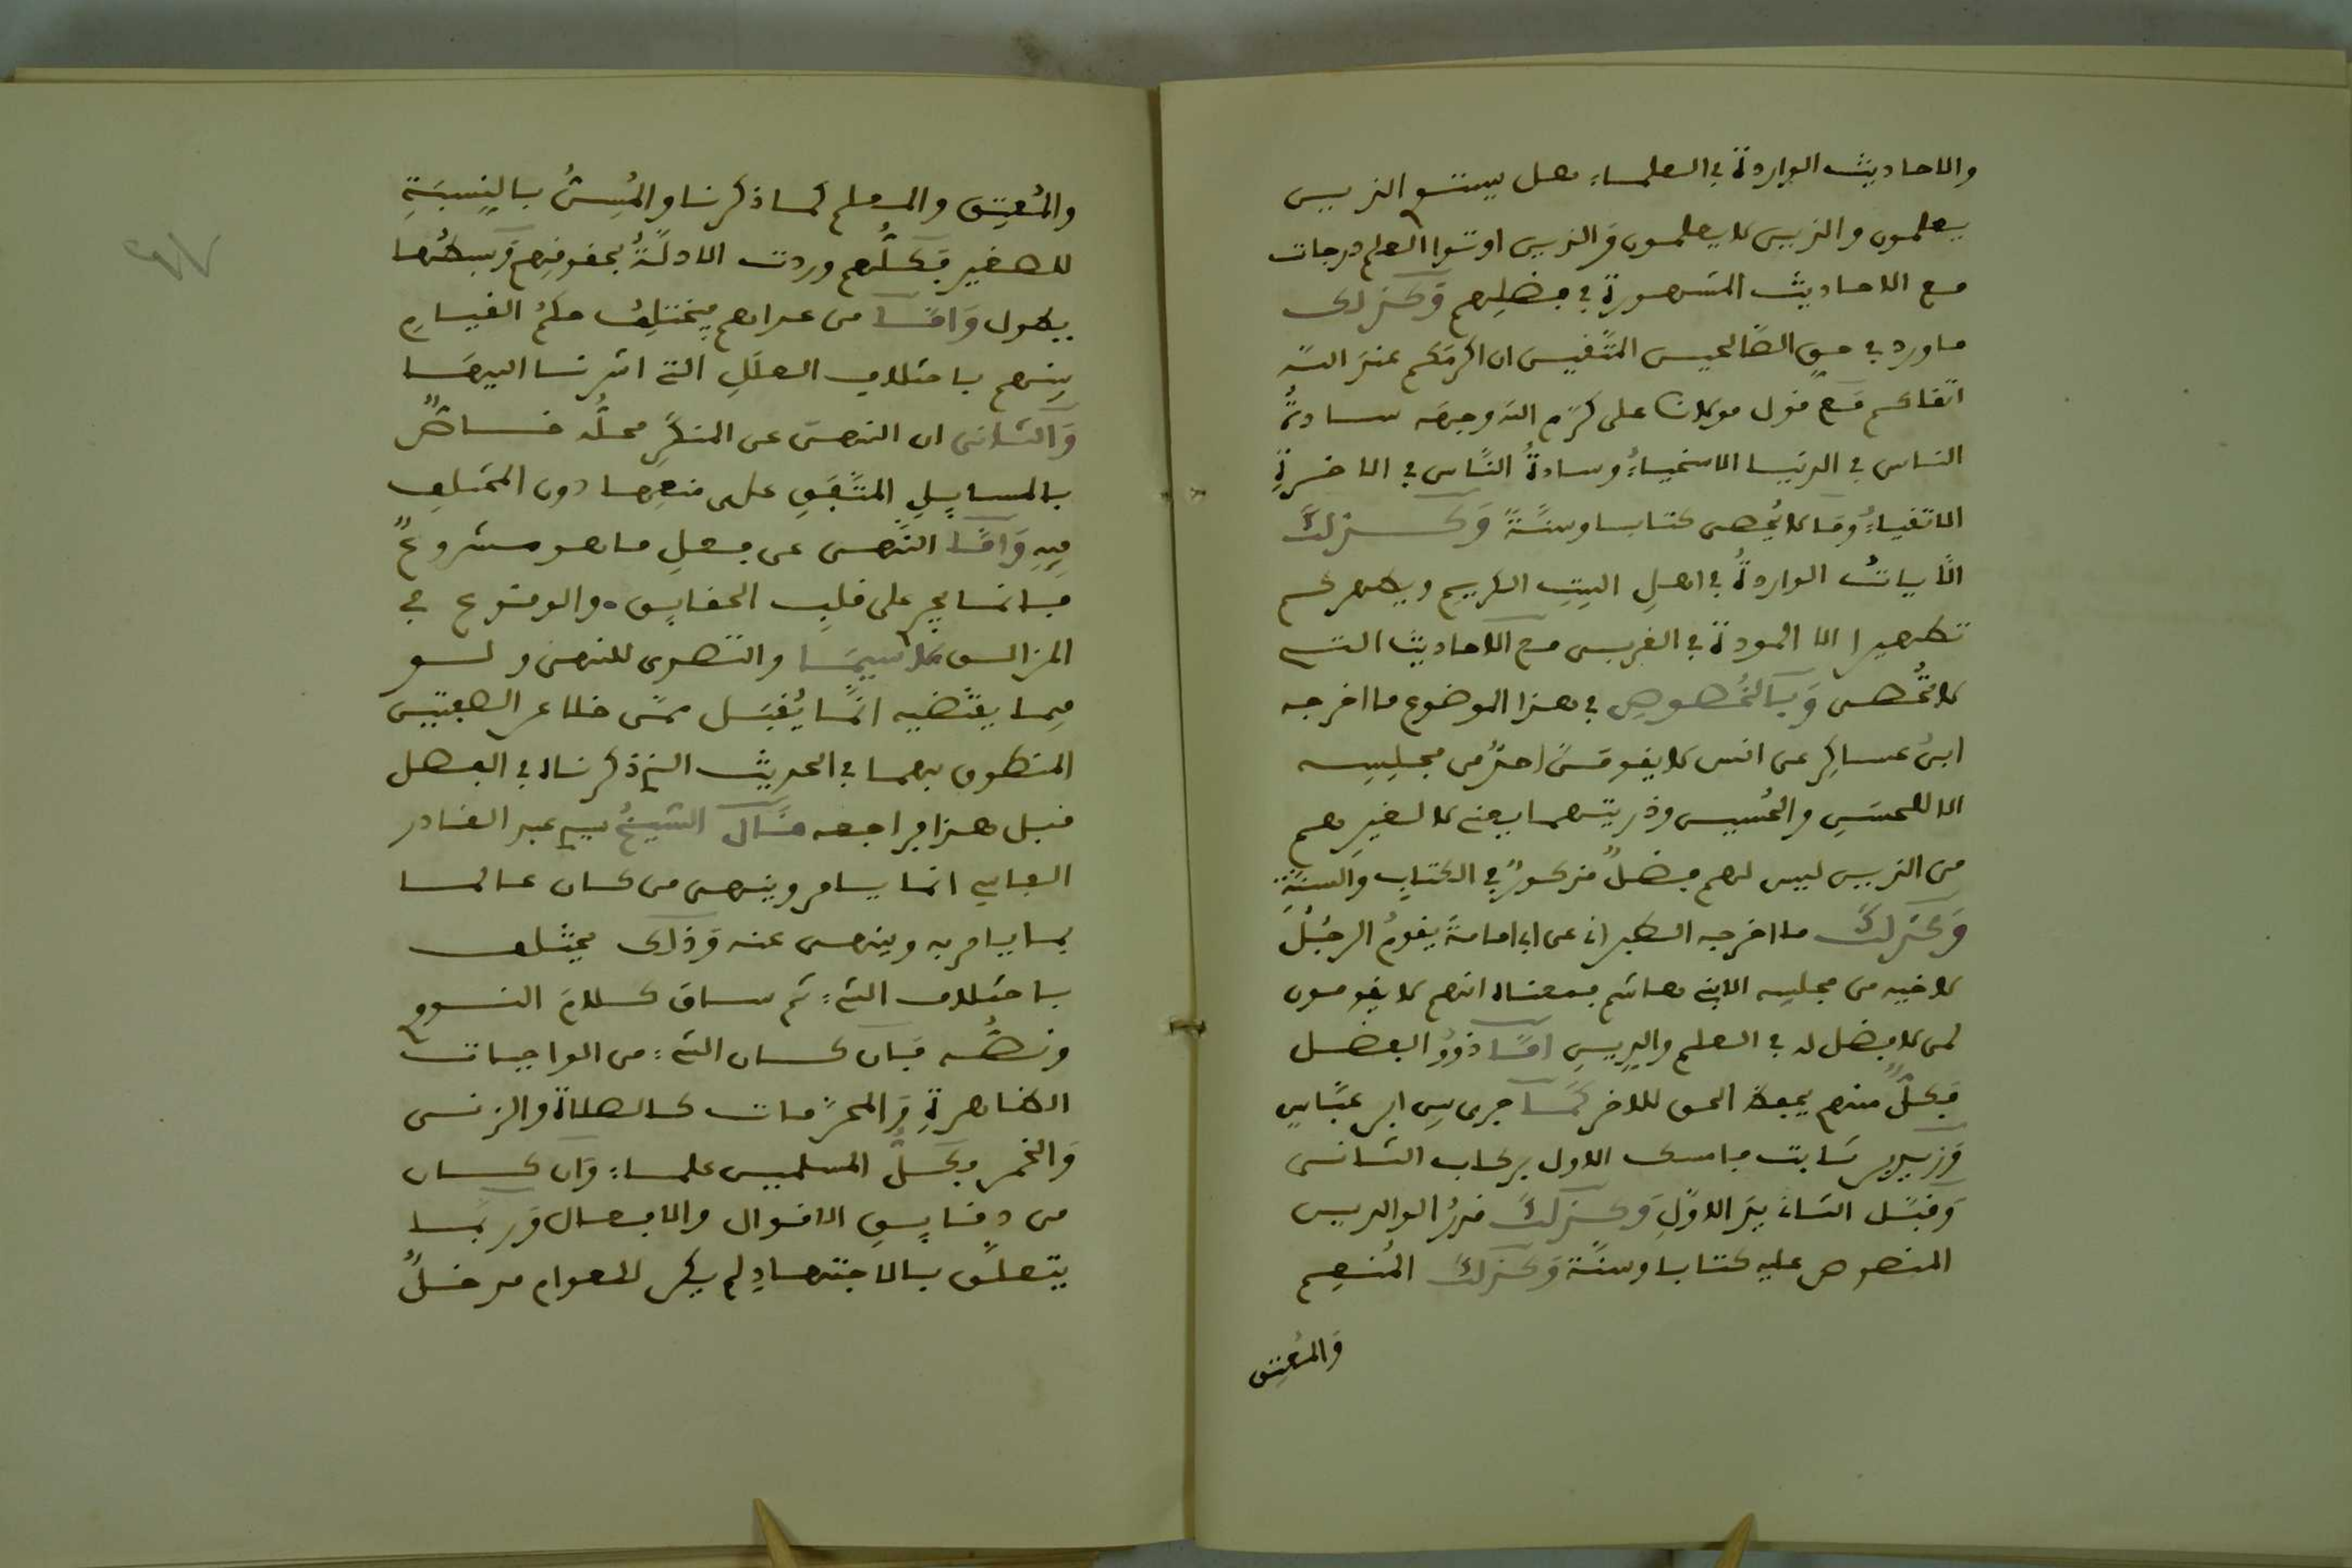 والاحاديث الواردة في العلماء هل يستو الذين
يعلمون والذين لا يعلمون وَالذين اوتوا العلم درجات
مع الاحاديث المشهورة في فضلِهم وَكذلك
ما ورد في حقِ الصَّالحين المتَّقين ان اكرمَكم عندَ اللَّه
اتقاكم مَع قول مولانا على كرَّم اللَّه وجهَه سادةُ
الناس في الدنيا الاسخياءُ وسادةُ النَّاس في الاخرةِ
الاتقياءُ ومَا لا يُحصى كتابا وسنَّةً وَكذلكَ
الأياتُ الواردةُ في اهلِ البيتِ الكريمِ ويطهركم
تطهيرا الا المودة في القربى مع الاحاديث التى
لا تُحصى وَبالخُصوصِ في هذا الموضوع ما اخرجه
ابنُ عساكِر عن انس لا يقومَنَّ احدٌ من مجلِسِه
الا للحسَنِ والحُسين وذريتهما يعنى لا لغيرِهم
من الذين ليس لهم فضلٌ مذكورٌ في الكتابِ والسنَّةِ
وَكذلكَ ما اخرجه الطبرانى عن ابى امامةَ يقومُ الرجُلُ
لاخيه من مجلسِه الا بنى هاشم فمعناه انهم لا يقومون
لمن لا فضل له في العلم والدِينِ امَّا ذوُو الفضل
فَكلٌّ منهم يحفظ الحق للاخر كمَا جرى بين ابن عبَّاسٍ
وَزيد بن ثَابت فامسك الاول بركاب الثانى
وَقبَّل الثانى يدَ الاوَّلِ وَكذلكَ قدرُ الوالدين
المنصوص عليه كتابا وسنَّة وَكذلكَ المُنعِم
وَالمُعتِق
والمُعتِق والمعلم كما ذكرنا والمُسِنُّ بالنِسبَةِ
للصغير فَكلُّهم وردت الادلَّةُ بحقوقِهم وَبسطُها
يطول وَامَّا من عداهم فيختلِفُ حكمُ القيامِ
بينهم باختلاف العلَلِ التى اشرنا اليهَا
وَالثانى ان النهىَ عن المنكَرِ محلُّه خاصٌّ
بالمسايِلِ المتَّفَقِ على منعِها دون المختَلِف
فِيهِ وَامَّا النَّهى عن فعلِ ما هو مشروعٌ
فانما يجر على قلبِ الحقايِق والوقوع في
المزالق لا سيمَا والتصدى للنهى ولو
فِيما يقتَضيه انَّما يُقبَل ممَّن خلا عن الصفتين
المنطوق بهما في الحديث الذى ذكرناه في الفصل
قبل هذا فراجعه قَال الشيخُ سيدى عبد القادر
الفاسى انما يامر وينهى من كان عالما
بما يامر به وينهى عنه وَذلك يختلف
باختلاف الشىء ثم ساق كلامَ النووى
ونصُّه فَان كان الشىء من الواجبات
الظاهرةِ وَالمحرَّمات كالصلاة والزنى
وَالخمر فكلُّ المسلمين علماء وَان كان
من دقايِقِ الاقوال والافعال وَربَّما
يتعلَّق بالاجتهادِ لم يكن للعوام مدخلٌ